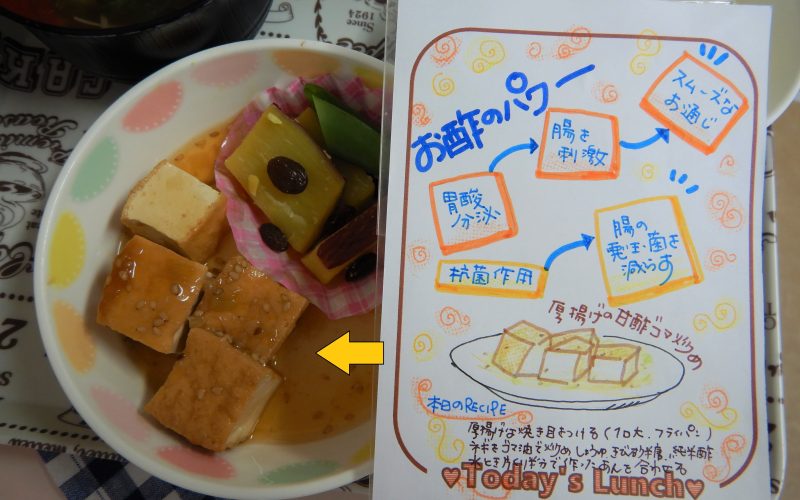 Since
1924
お酢のパワー
スムーズな
お通じ
腸を
刺激
胃酸
分泌
腸の
発生菌を
減らす
抗菌作用
厚揚げの甘酢ゴマ炒め
本日のRECIPE
厚揚げな焼き目をつける(1口大、フライパン)
ネギをゴマ油で炒め しょうゆ、きび砂糖、純米酢
あんを合わせる
♥Today's Lunch♥